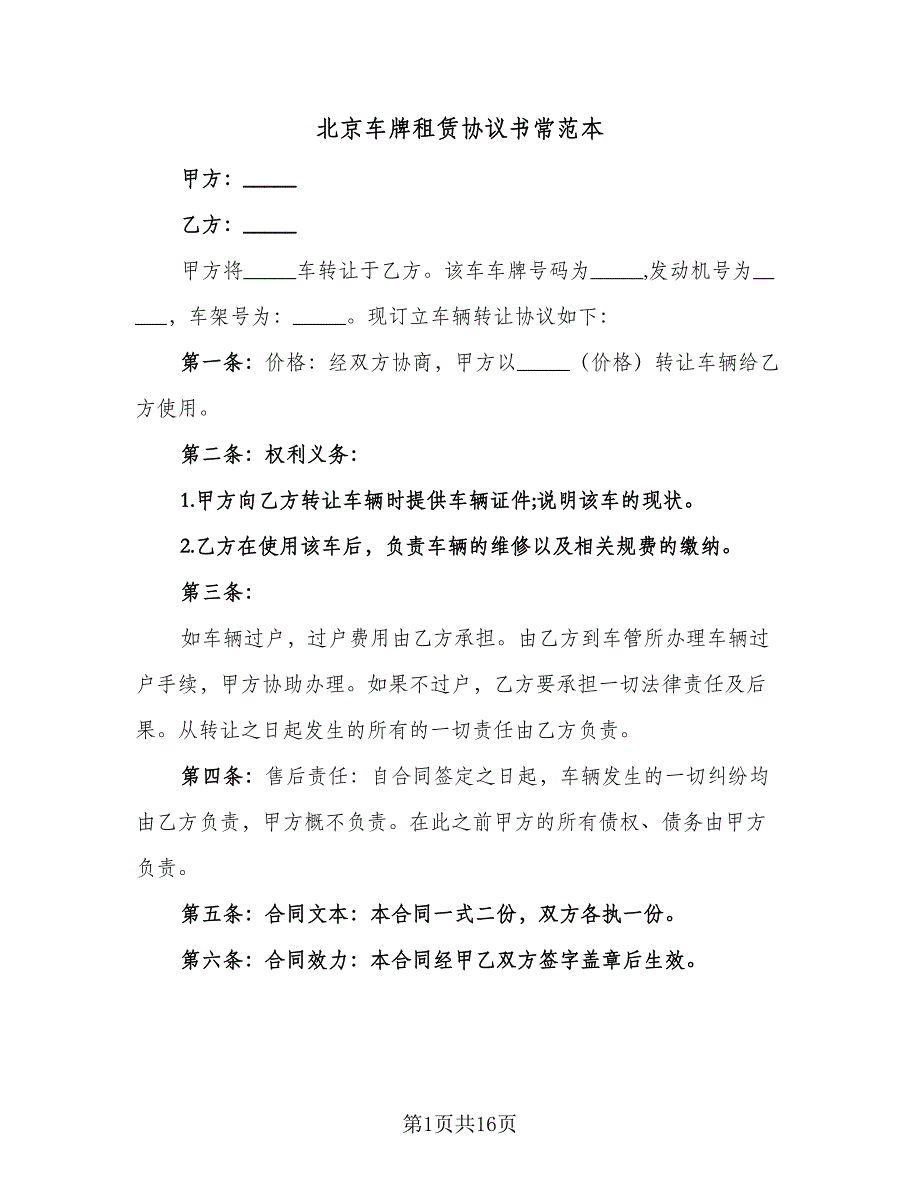 北京车牌租赁协议书常范本
甲方：_____
乙方：_____
甲方将_____车转让于乙方。该车车牌号码为_____,发动机号为__
___，车架号为：_____。现订立车辆转让协议如下：
第一条：价格：经双方协商，甲方以_____（价格）转让车辆给乙
方使用。
第二条：权利义务：
1.甲方向乙方转让车辆时提供车辆证件;说明该车的现状。
2.乙方在使用该车后，负责车辆的维修以及相关规费的缴纳。
第三条：
如车辆过户，过户费用由乙方承担。由乙方到车管所办理车辆过
户手续，甲方协助办理。如果不过户，乙方要承担一切法律责任及后
果。从转让之日起发生的所有的一切责任由乙方负责。
第四条：售后责任：自合同签定之日起，车辆发生的一切纠纷均
由乙方负责，甲方概不负责。在此之前甲方的所有债权、债务由甲方
负责。
第五条：合同文本：本合同一式二份，双方各执一份。
第六条：合同效力：本合同经甲乙双方签字盖章后生效。
第1页共16页